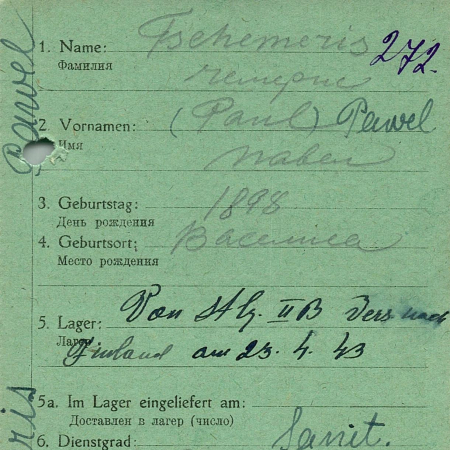 Pawel
1. Name: Tschemeris 272.
Фамилия Чемерис
2. Vornamen: (Paul) Pawel
Имя Павел
3. Geburtstag: 1898
День рождения
4. Geburtsort: Василица
Место рождения
5. Lager: Von Stlg. II B Vers nach
Лагерь Finland am 23. 4. 43
5a. Im Lager eingeliefert am:
Доставлен в лагер (число)
6. Dienstgrad: Sanit.
ris